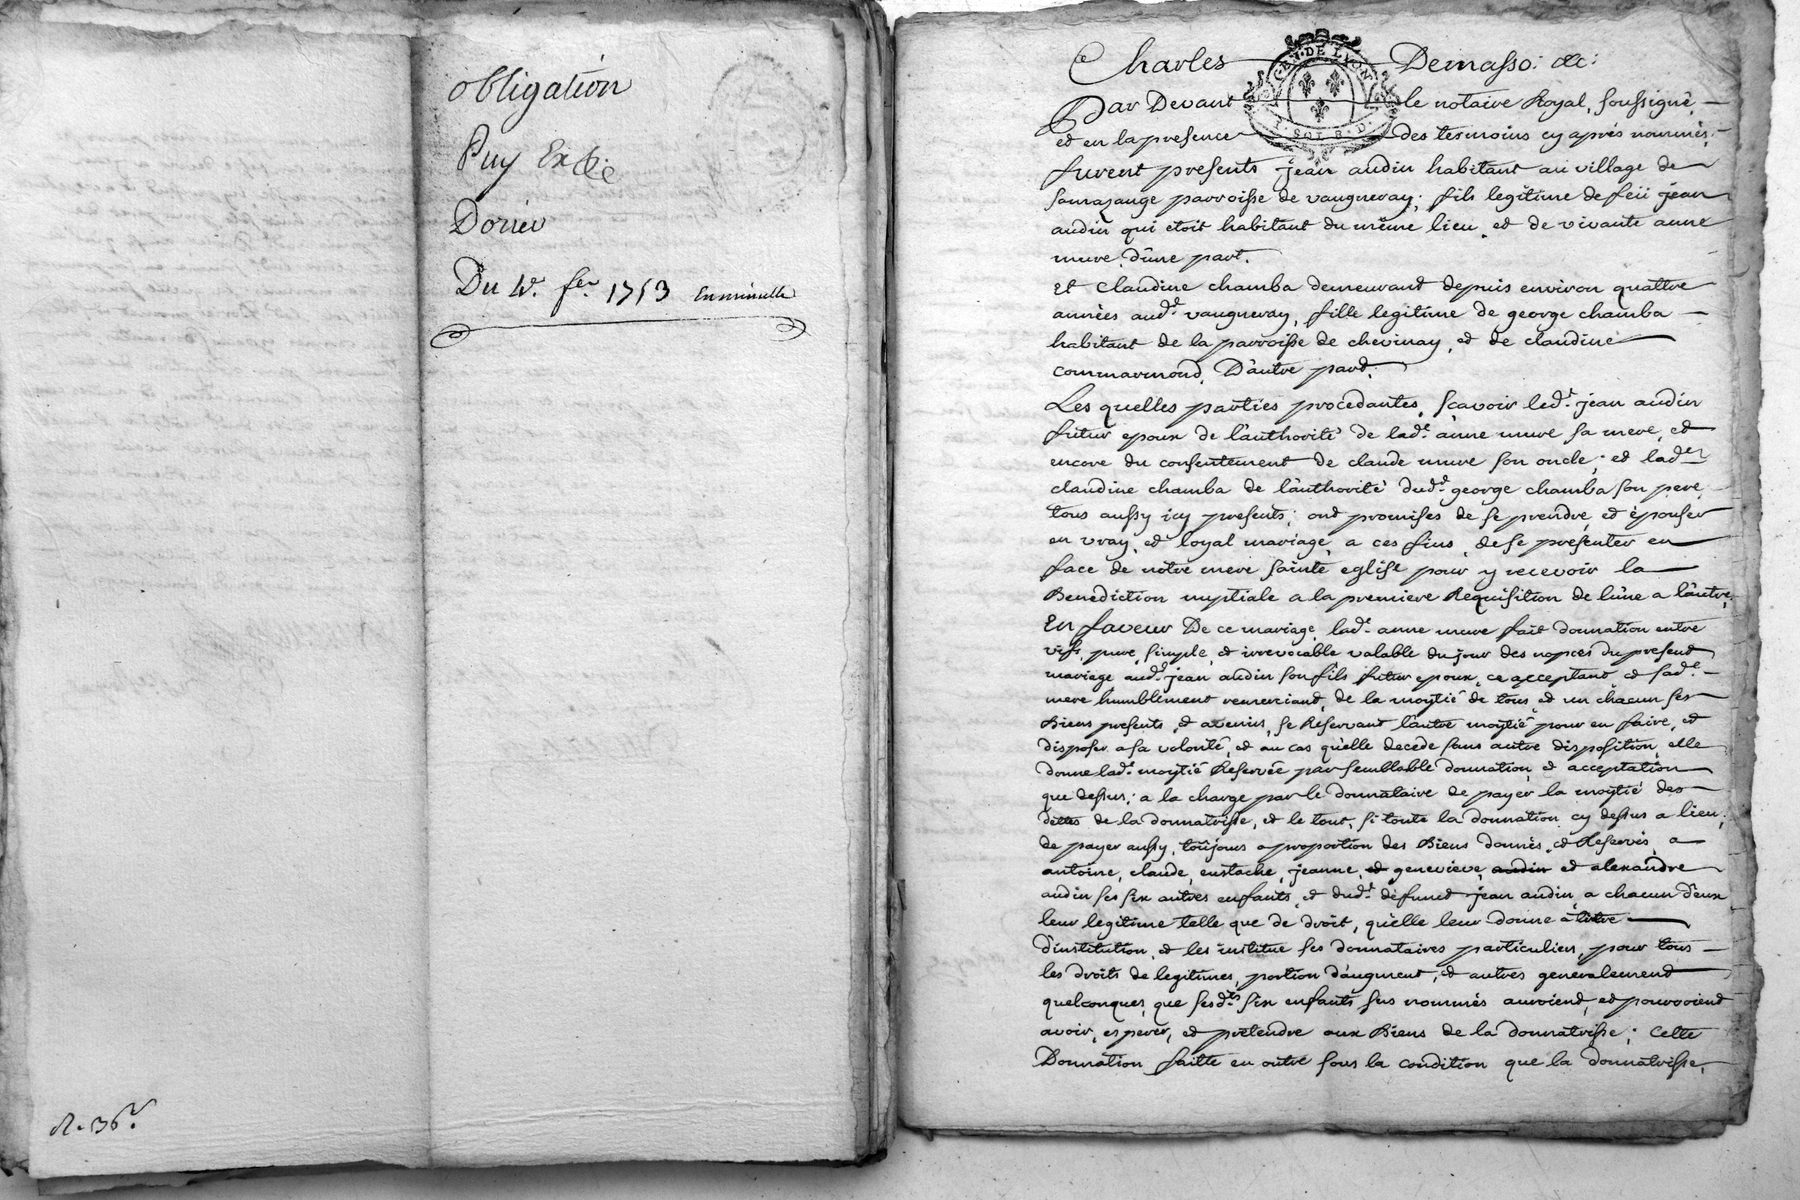 obligation
Puy
Dorier
Du fer. 1753 En minutte
Charles Demasso: &c:
GEN. DE LYON
Par Devant le notaire Royal, soussigné
et en la presence des tesmoins cy aprés nommés,
furent presents jean audin habitant au village de
parroisse de vaugneray; fils legitime de feü jean
audin qui etoit habitant du même lieu, et de vivante anne
mure, d'une part.
et claudine chamba demeurant depuis environ quattre
années audt. vaugneray, fille legitime de george chamba
habitant de la parroisse de chevinay, et de claudine
commarmond, D'autre part.
Les quelles parties procedantes, sçavoir ledt. jean audin
futur epoux de l'authorité de lade. anne mure sa mere, et
encore du consentement de claude mure son oncle; et lade.
claudine chamba de l'authorité dudt. george chamba son pere,
tous aussy icy presents; ont promises de se prendre, et épouser
en vray, et loyal mariage, a ces fins, de se presenter en
face de notre mere sainte eglise pour y recevoir la
Benediction nuptiale a la premiere Requisition de l'une a l'autre,
En faveur De ce mariage, lade. anne mure fait donnation entre
vifs, pure, simple, et irrevocable valable du jour des nopces du present
mariage audt. jean audin son fils futur epoux, ce acceptant et sade.
mere humblement remerciant, de la moytié de tous, et un chacun ses
Biens presents, et avenir, se Reservant l'autre moytié pour en faire, et
disposer a sa volonté, et au cas qu'elle decede sans autre disposition, elle
donne lade. moytié Reservée par semblable donnation, et acceptation
que dessus; a la charge par le donnataire de payer la moytié des
dettes de la donnatrisse, et le tout, si toute la donnation cy dessus a lieu;
de payer aussy, toûjours a proportion des Biens donnés, et Reservés, a
antoine, claude, eustache, jeanne, et genevieve, audin et alexandre
audin ses six autres enfants, et dudt. defunct jean audin, a chacun d'eux
leur legitime telle que de droit, qu'elle leur donne à titre
d'institution, et les institue ses donnataires particuliers, pour tous
les droits de legitimes, portion d'augment, et autres generalement
quelconques, que sesdts. six enfants sus nommés auroient, et pourroient
avoir, esperer, et prétendre aux Biens de la donnatrisse; Cette
Donnation faitte en outre sous la condition que la donnatrisse,